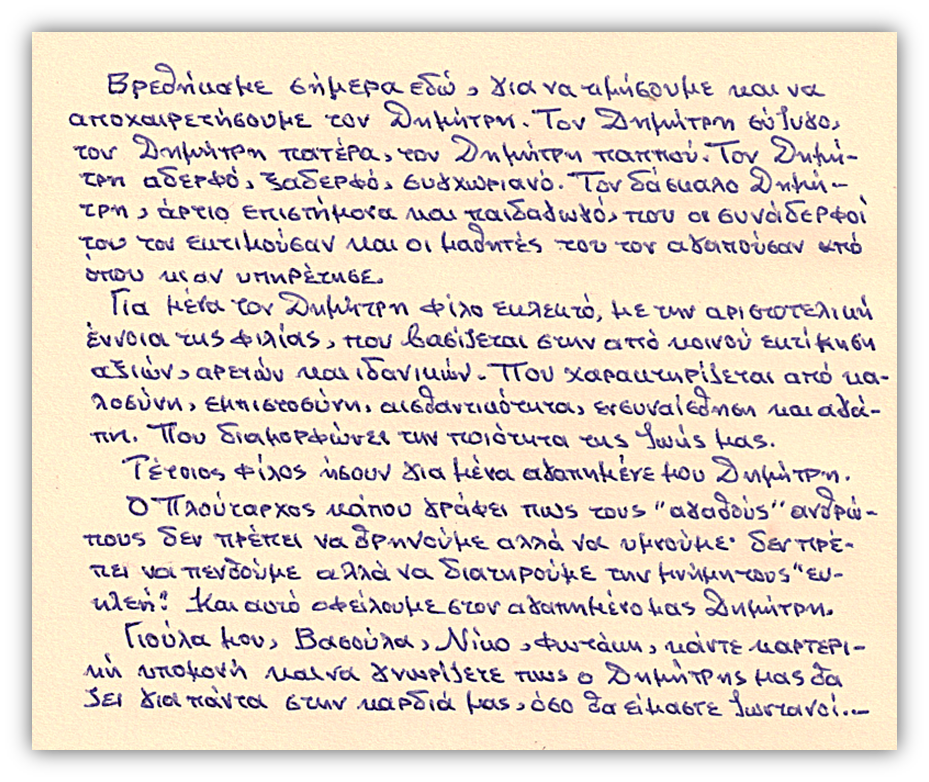 Βρεθήκαμε σήμερα εδώ, για να τιμήσουμε και να
αποχαιρετήσουμε τον Δημήτρη. Τον Δημήτρη σύζυγο,
τον Δημήτρη πατέρα, τον Δημήτρη παππού. Τον Δημή-
τρη αδερφό, ξαδερφό, συγχωριανό. Τον δάσκαλο Δημή-
τρη, άρτιο επιστήμονα και παιδαγωγό, που οι συνάδερφοί
του τον εκτιμούσαν και οι μαθητές του τον αγαπούσαν από
όπου κι αν υπηρέτησε.
Για μένα τον Δημήτρη φίλο εκλεκτό, με την αριστοτελική
έννοια της φιλίας, που βασίζεται στην από κοινού εκτίμηση
αξιών, αρετών και ιδανικών. Που χαρακτηρίζεται από κα-
λοσύνη, εμπιστοσύνη, αισθαντικότητα, ενσυναίσθηση και αγά-
πη. Που διαμορφώνει την ποιότητα της ζωής μας.
Τέτοιος φίλος ήσουν για μένα αγαπημένε μου Δημήτρη.
Ο Πλούταρχος κάπου γράφει πως τους "αγαθούς" ανθρώ-
πους δεν πρέπει να θρηνούμε αλλά να υμνούμε· δεν πρέ-
πει να πενθούμε αλλά να διατηρούμε την μνήμη τους "ευ-
κλεή". Και αυτό οφείλουμε στον αγαπημένο μας Δημήτρη.
Γιούλα μου, Βασούλα, Νίκο, Φωτάκη, κάντε καρτερι-
κή υπομονή και να γνωρίζετε πως ο Δημήτρης μας θα
ζει για πάντα στην καρδιά μας, όσο θα είμαστε ζωντανοί.–